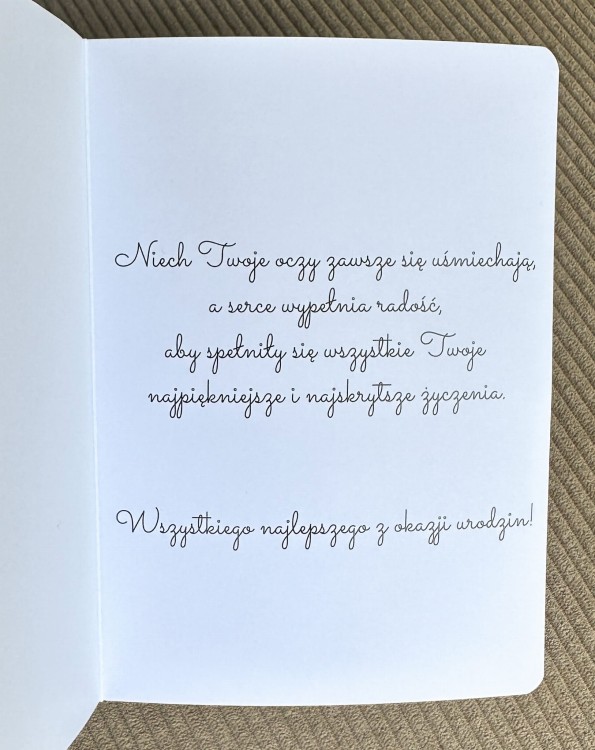 Niech Twoje oczy zawsze się uśmiechają,
a serce wypełnia radość,
aby spełniły się wszystkie Twoje
najpiękniejsze i najskrytsze życzenia.
Wszystkiego najlepszego z okazji urodzin!